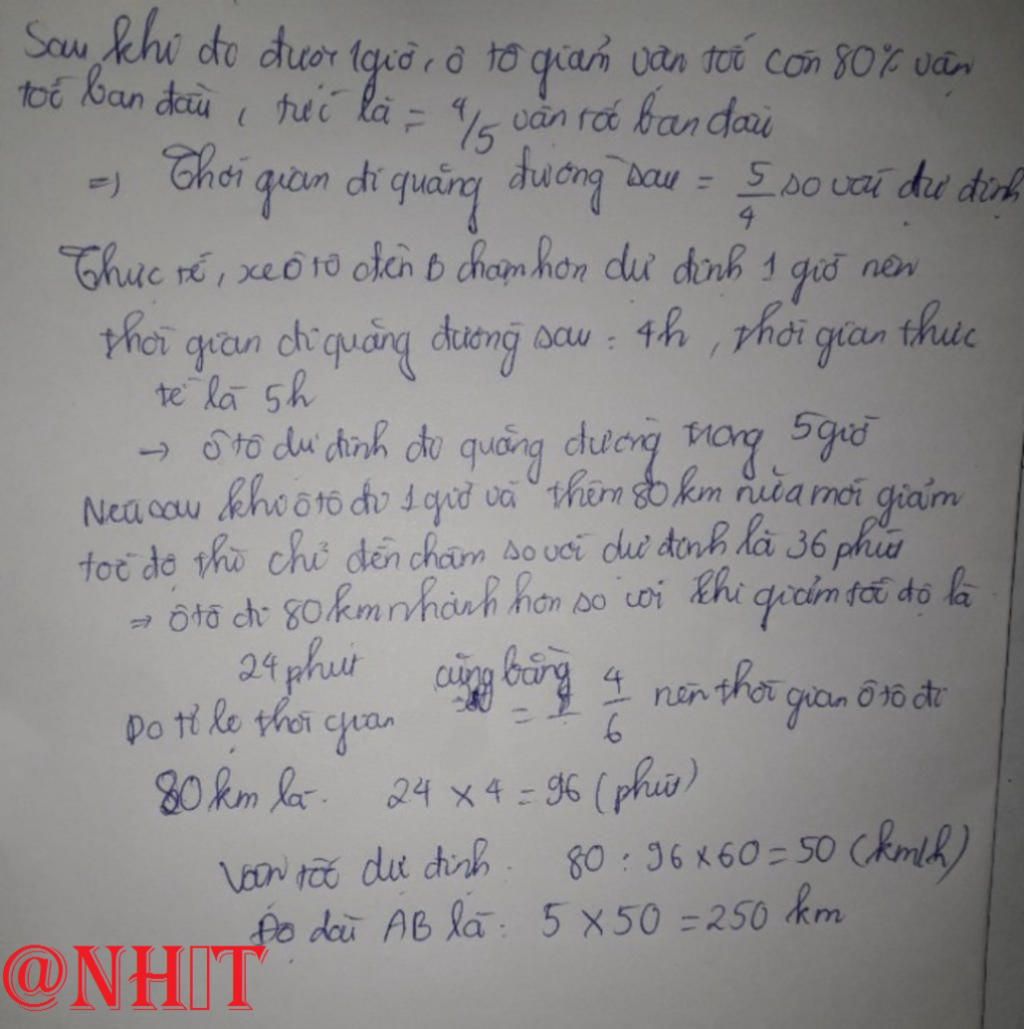 Sau khi đo được 1giờ, ô tô giảm vận tốc còn 80% vận
tốc ban đầu, tức là = 4/5 vận tốc ban đầu
=) Thời gian đi quãng đường sau = 5/4 so với dự định
Thực tế, xe ô tô đến B chậm hơn dự định 1 giờ nên
thời gian đi quãng đường sau : 4h, thời gian thực
tế là 5h
→ Ô tô dự định đo quãng đường trong 5 giờ
Nếu sau khi ô tô đi 1 giờ và thêm 80 km nữa mới giảm
tốc độ thì chỉ đến chậm so với dự định là 36 phút
⇒ Ô tô đi 80km nhanh hơn so với khi giảm tốc độ là
24 phút
Do tỉ lệ thời gian cũng bằng = 4/6 nên thời gian ô tô đi
80km là. 24 × 4 = 96 (phút)
Vận tốc dự định. 80 : 96 × 60 = 50 (km/h)
Độ dài AB là: 5 × 50 = 250 km
@NHIT